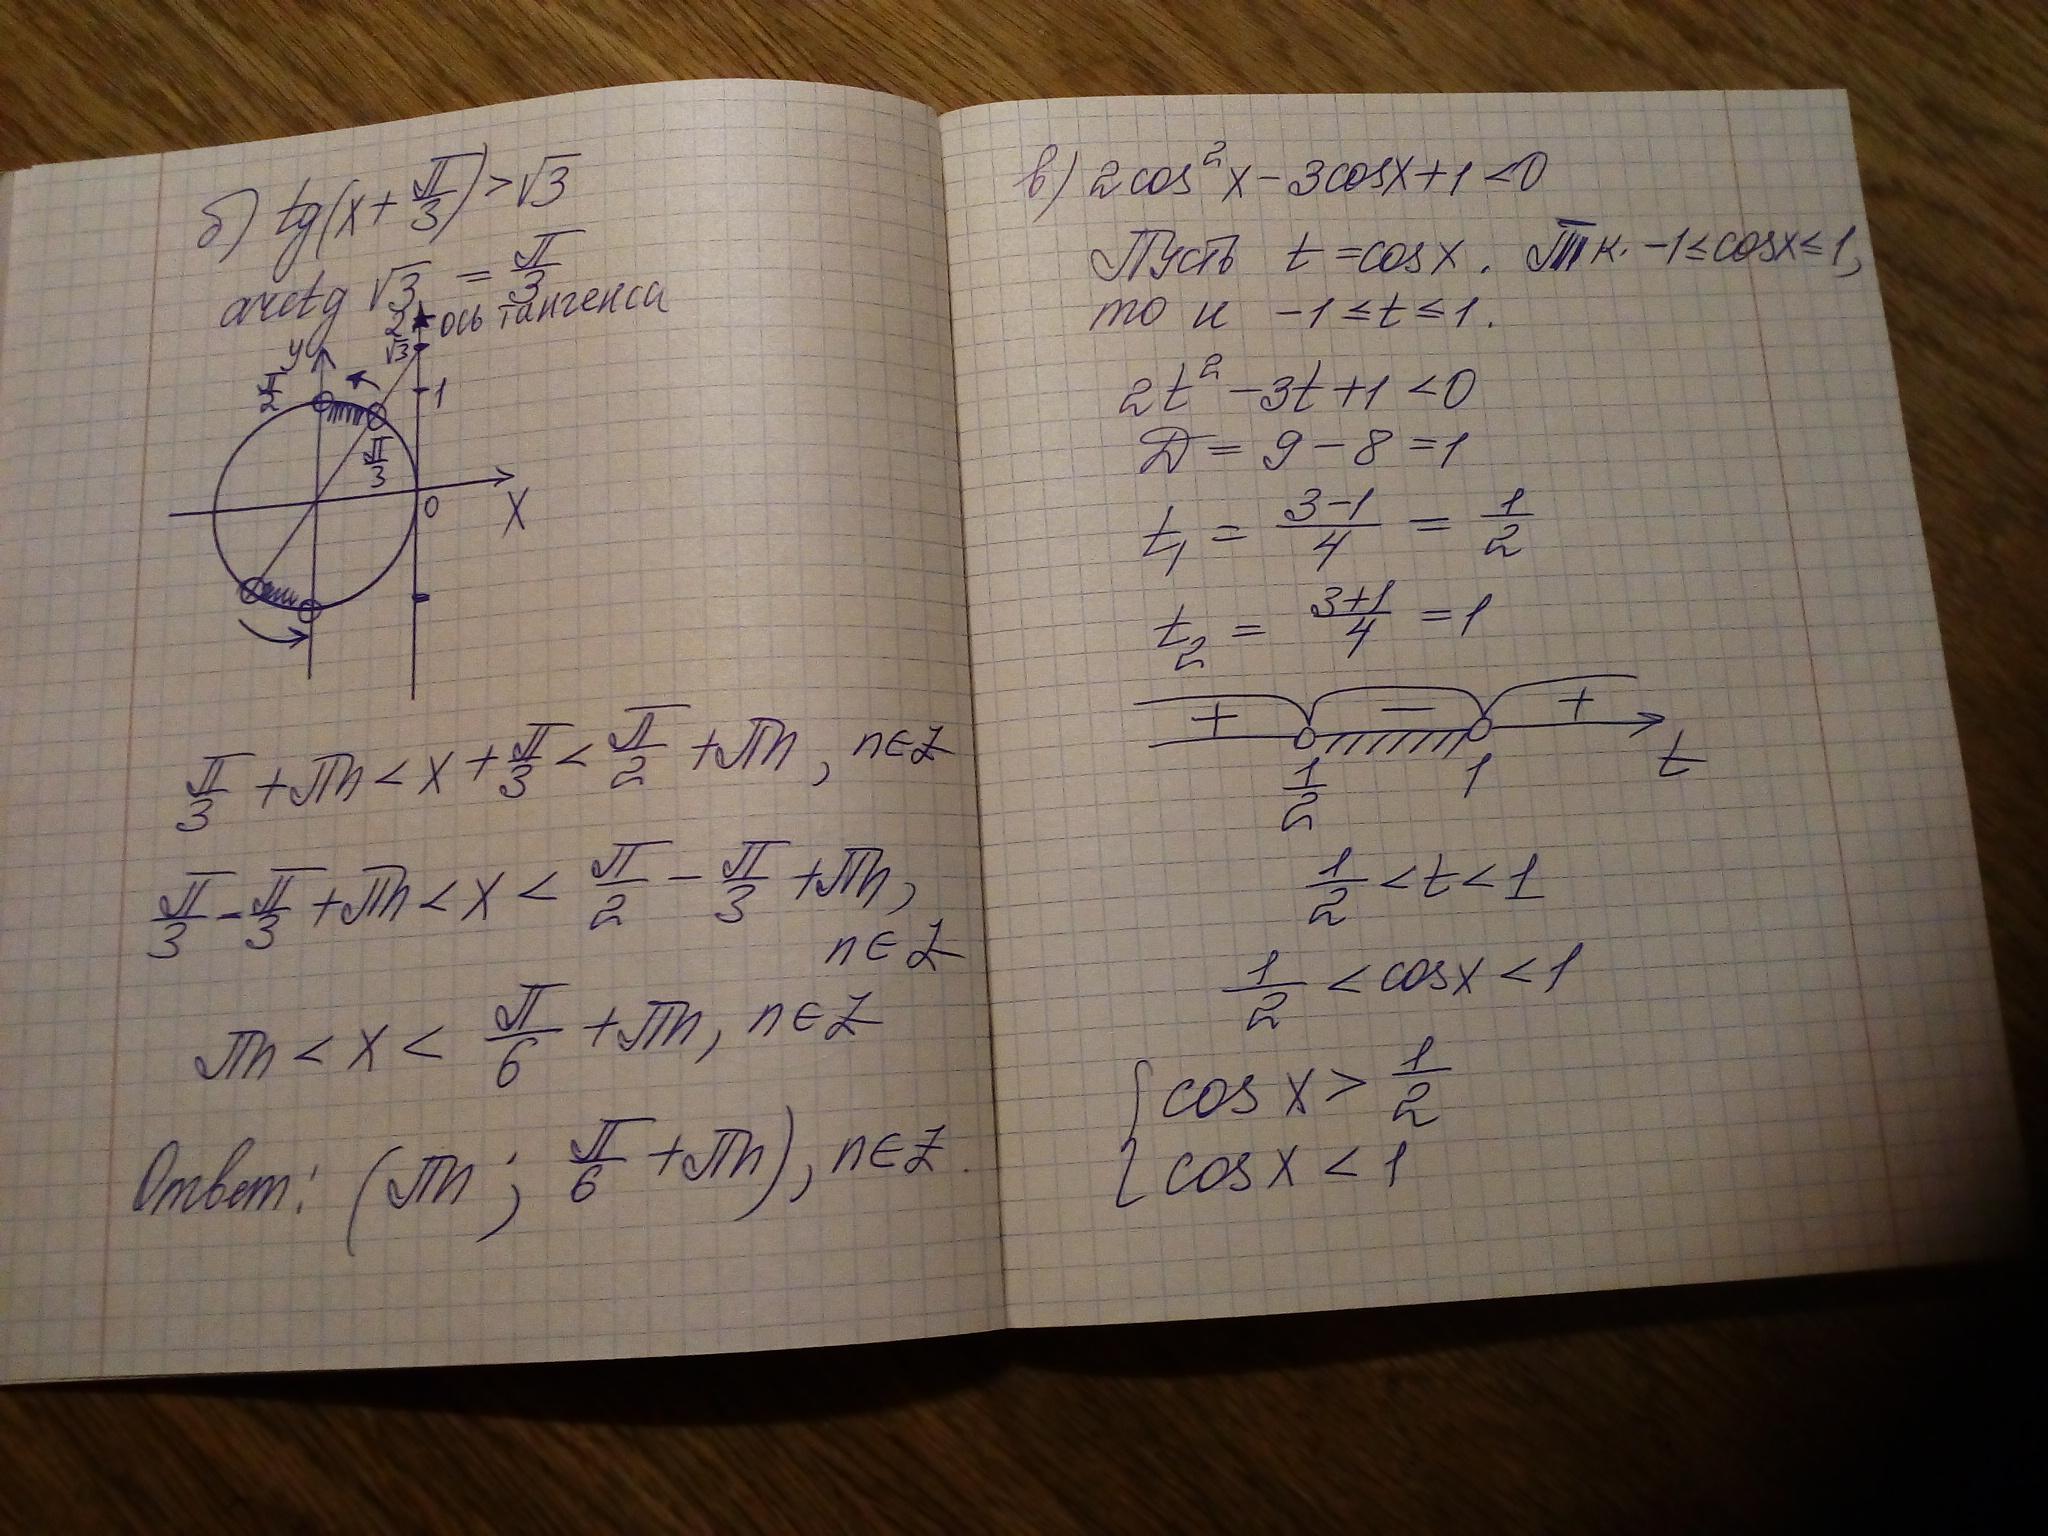 б) tg(x + π/3) > √3
arctg √3 = π/3
2
ось тангенса
√3
y
π/2
1
π/3
0
X
π/3 + πn < x + π/3 < π/2 + πn, n∈Z
π/3 - π/3 + πn < x < π/2 - π/3 + πn,
n∈Z
πn < x < π/6 + πn, n∈Z
Ответ: (πn; π/6 + πn), n∈Z.
в) 2cos²x - 3cosx + 1 < 0
Пусть t = cosx. Т.к. -1 ≤ cosx ≤ 1,
то и -1 ≤ t ≤ 1.
2t² - 3t + 1 < 0
D = 9 - 8 = 1
t₁ = (3-1)/4 = 1/2
t₂ = (3+1)/4 = 1
+ − +
1/2 1 t
1/2 < t < 1
1/2 < cosx < 1
{ cos x > 1/2
{ cos x < 1